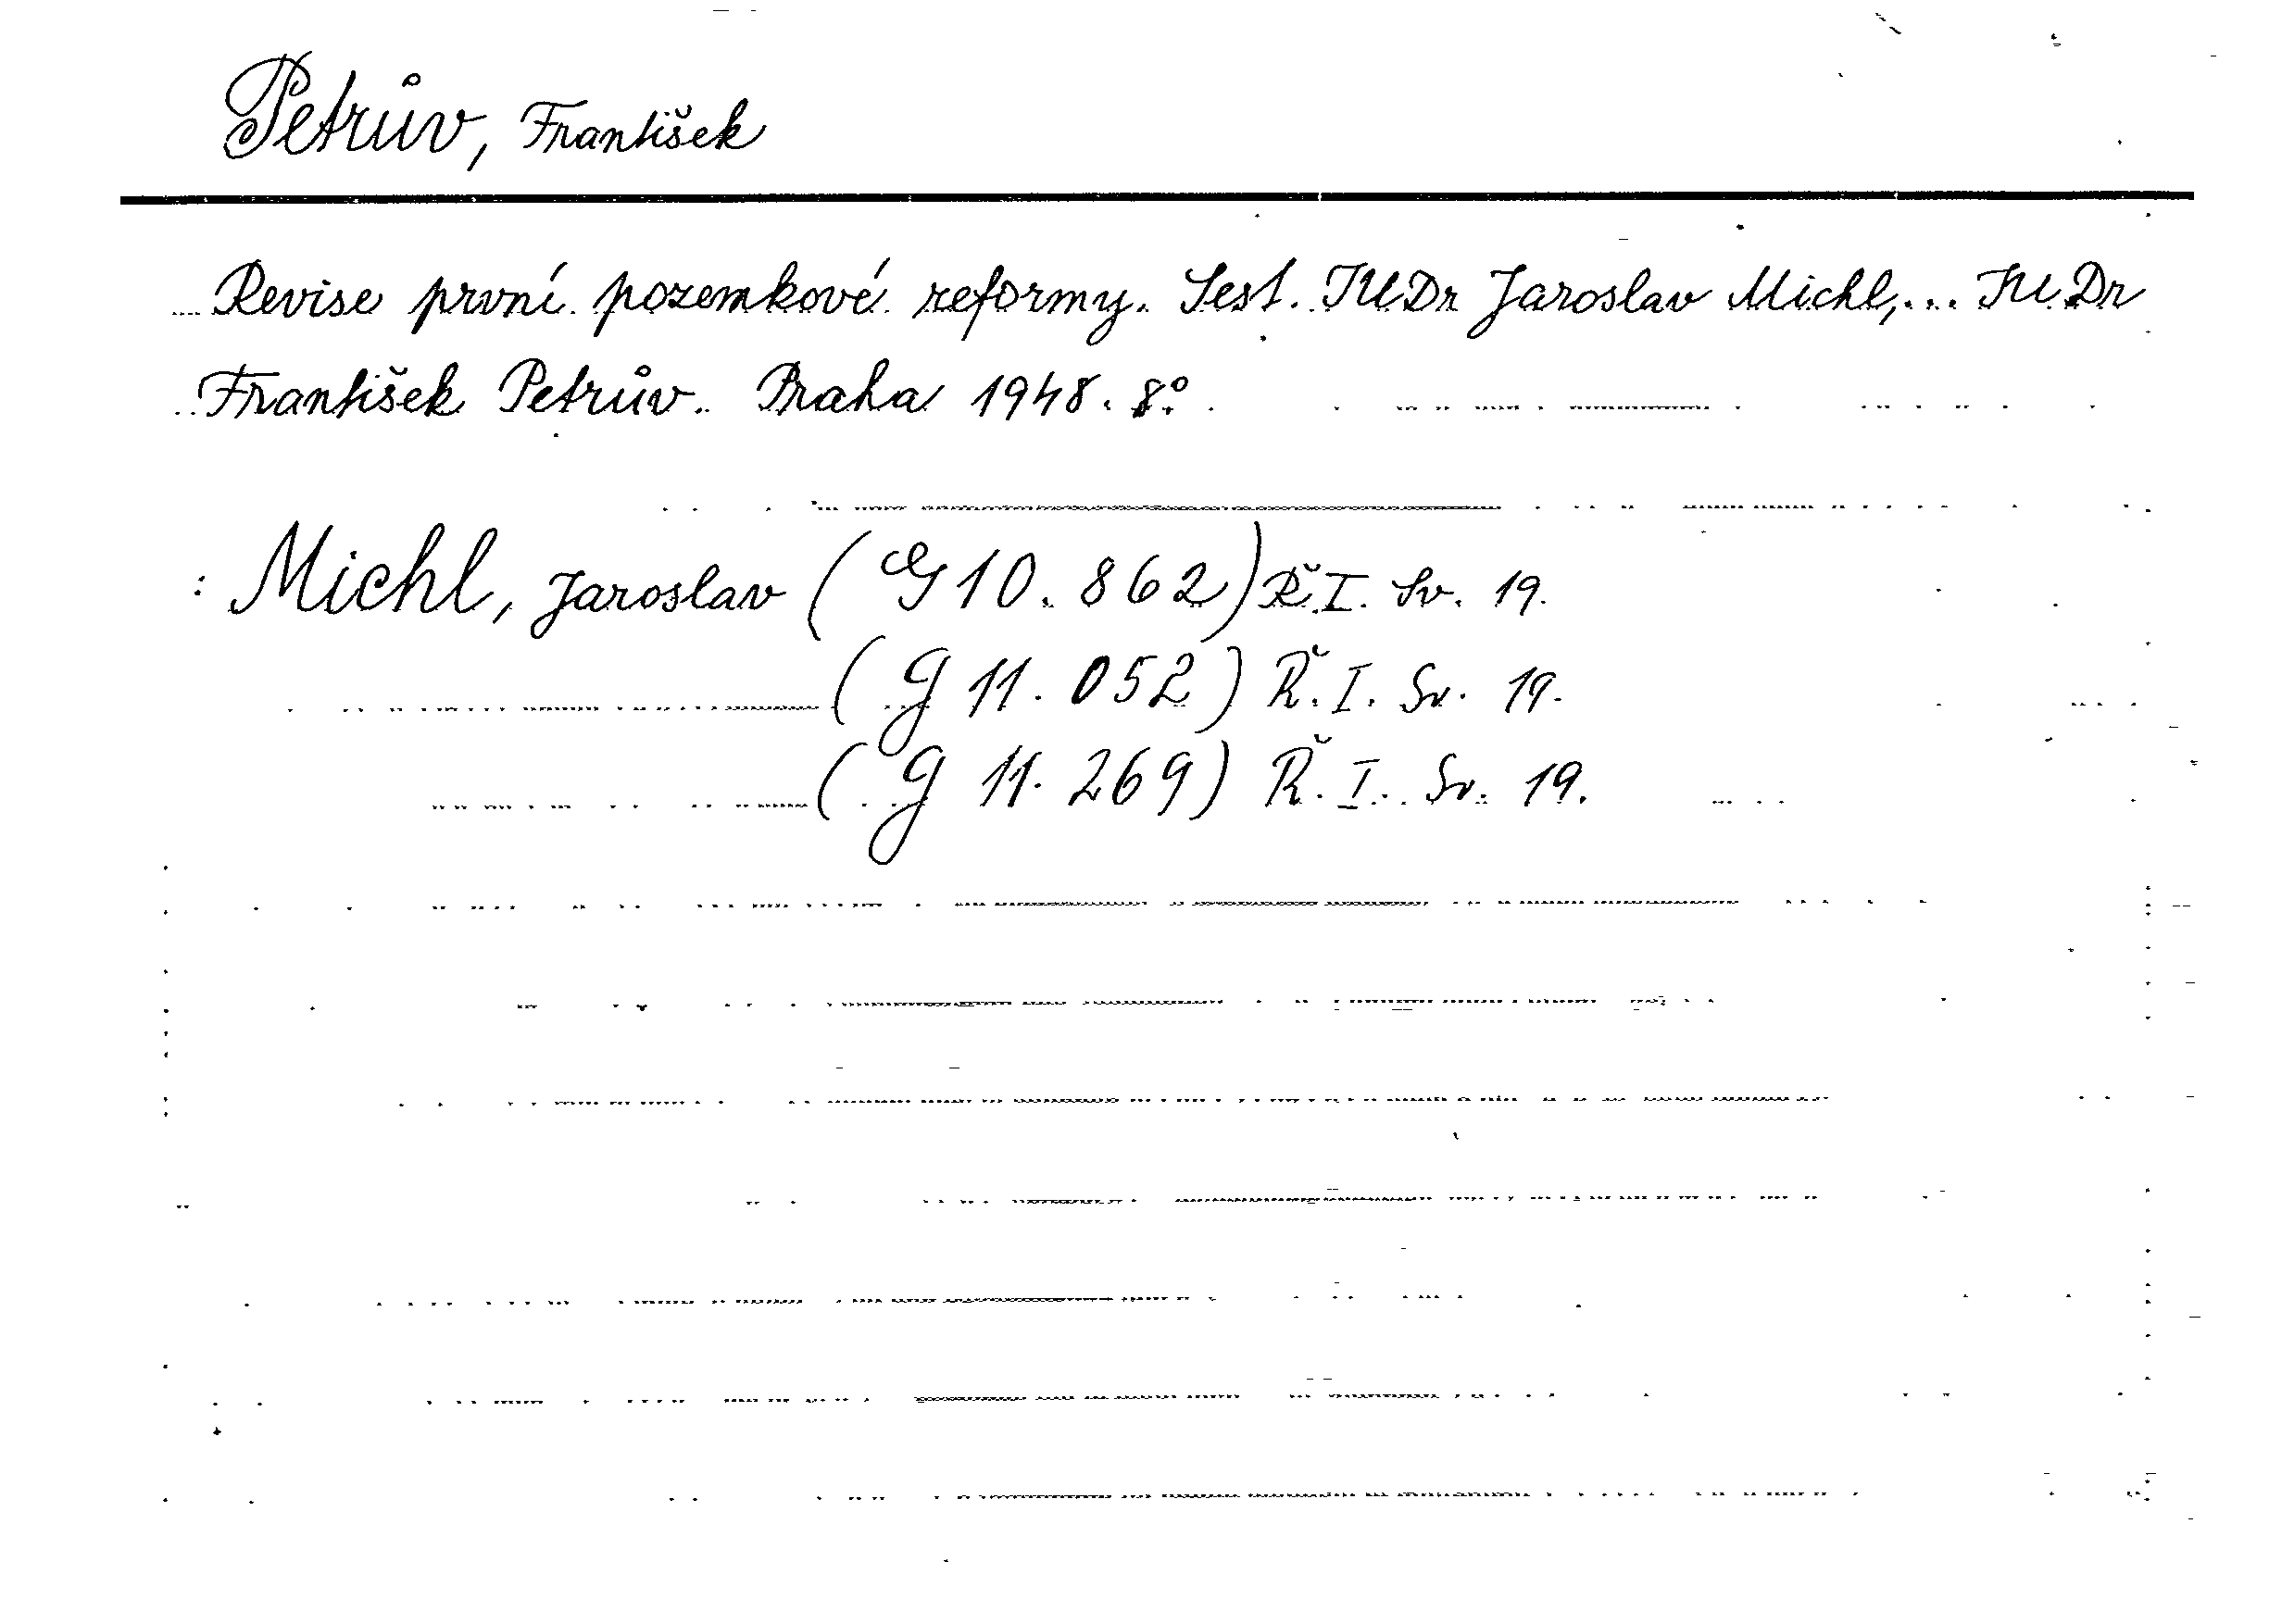 Petrův, František
Revise první pozemkové reformy. Sest. JUDr Jaroslav Michl,... JUDr
František Petrův. Praha 1948. 8°.
: Michl, Jaroslav (G 10.862) Ř.I. Sv. 19.
(G 11.052) Ř.I. Sv. 19.
(G 11.269) Ř.I. Sv. 19.